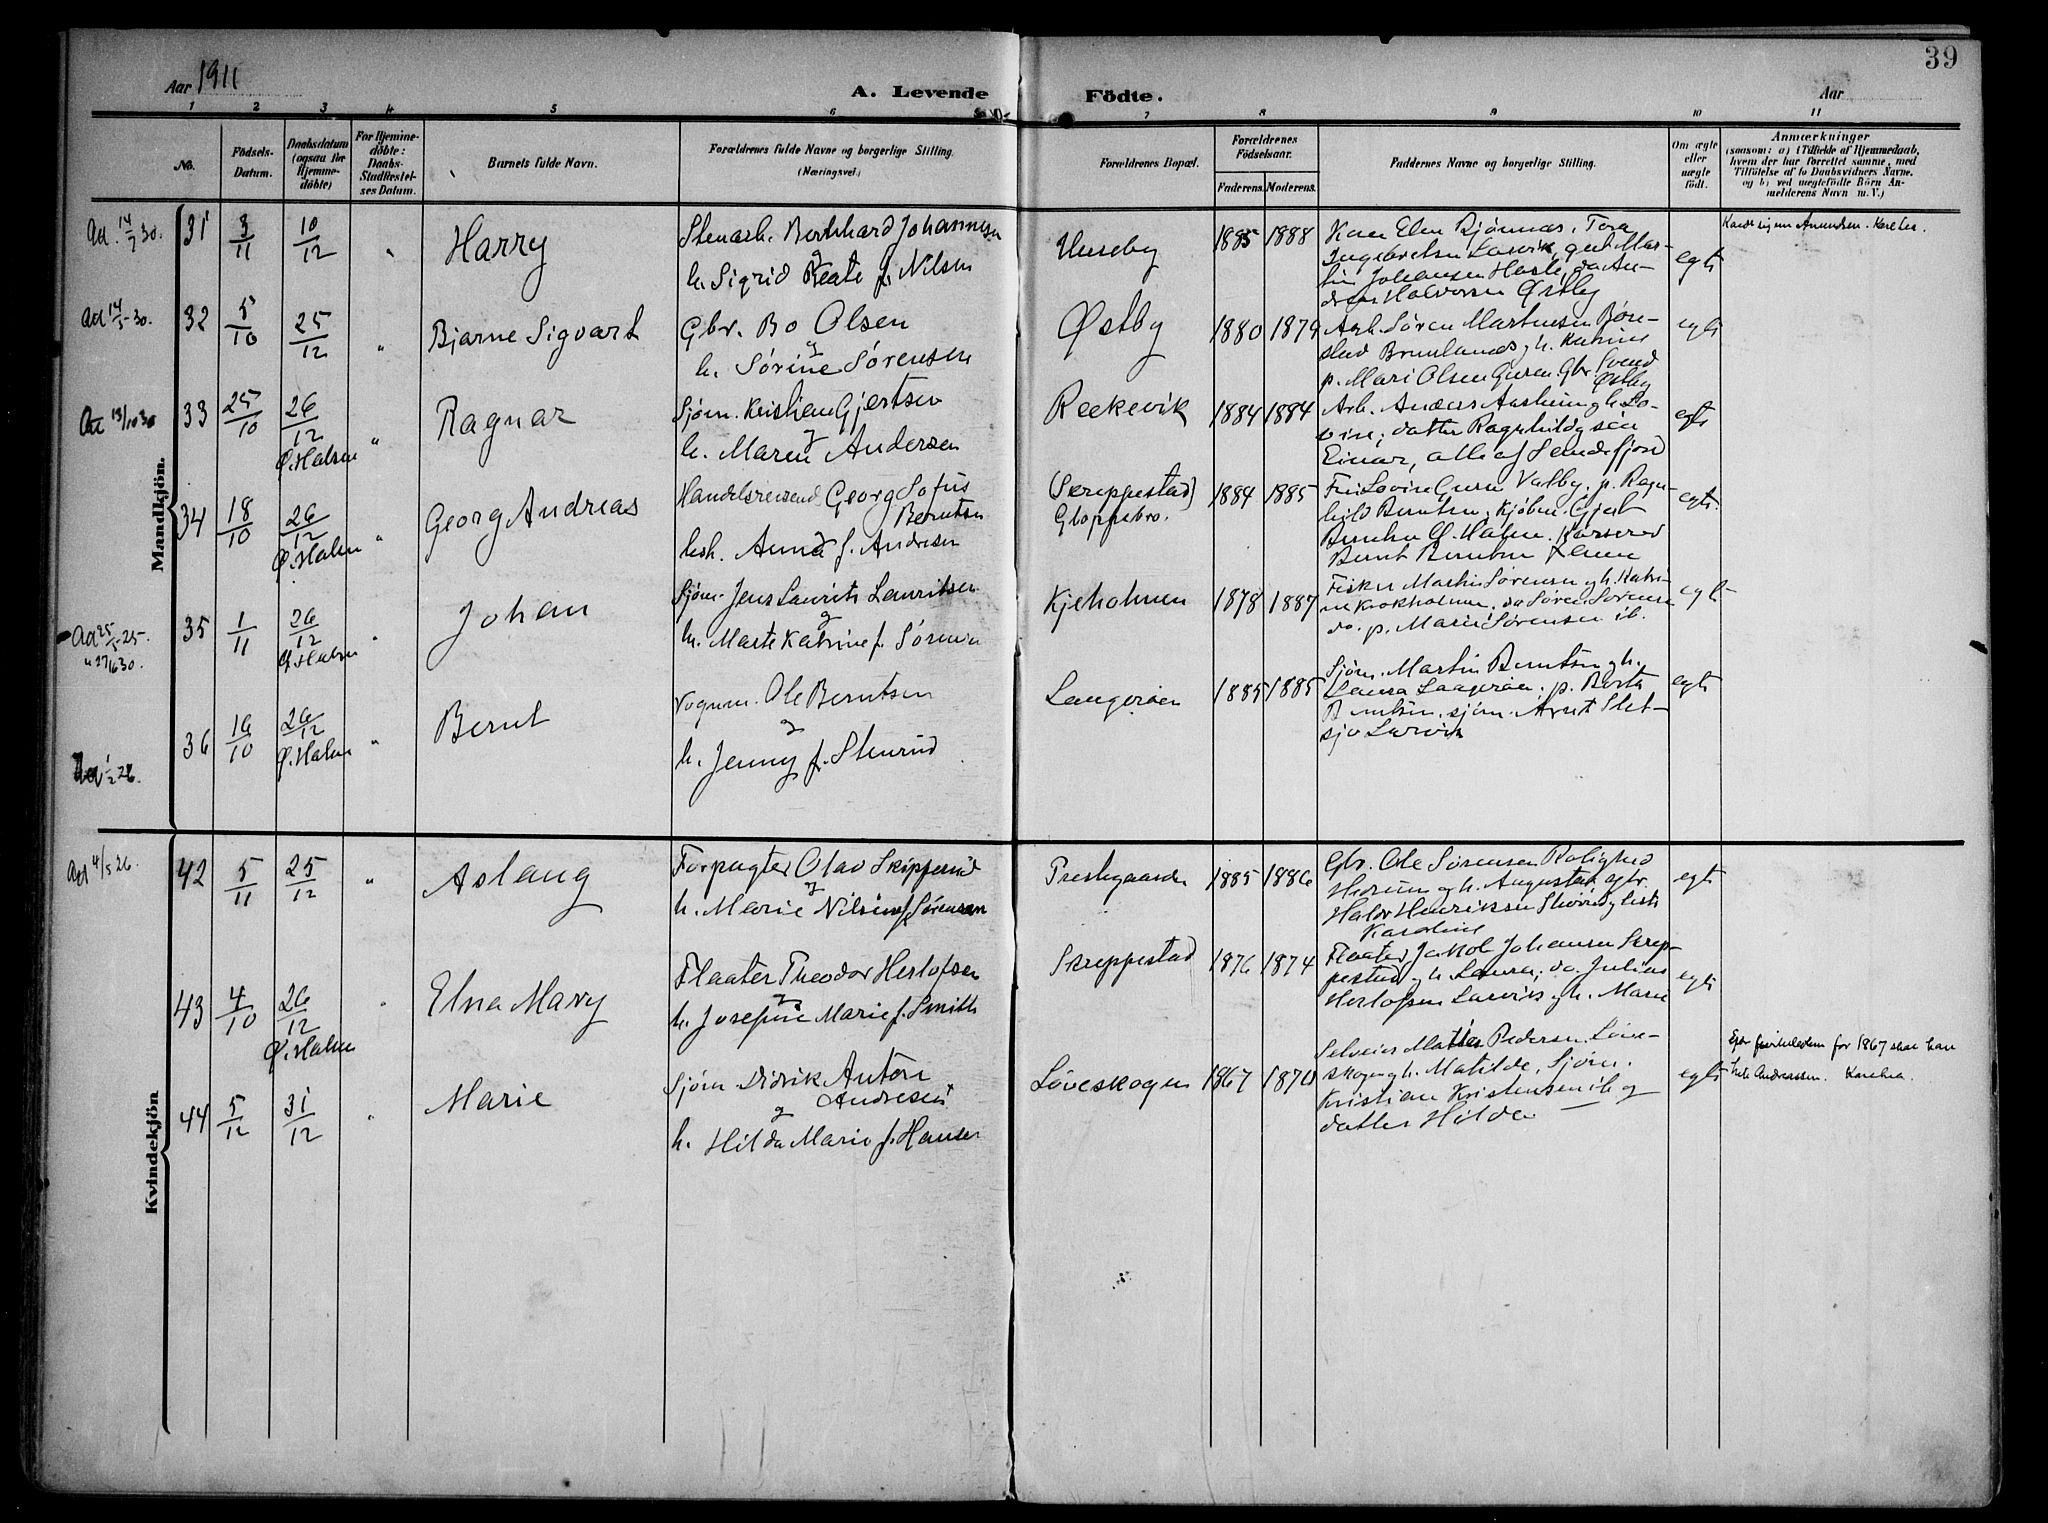 39
Aar 1911
A. Levende Födte.
Aar
1 2 3 4 5 6 7 8 9 10 11
No.
Födsels-
Datum.
Daabsdatum
(ogsaa for
Hjemme-
döbte)
For Hjemme-
döbte:
Daabs-
Stadfæstel-
ses Datum.
Barnets fulde Navn.
Forældrenes fulde Navne og borgerlige Stilling.
(Næringsvei.)
Forældrenes Bopæl.
Forældrenes
Födselsaar.
Faderens. Moderens.
Faddernes Navne og borgerlige Stilling.
Om ægte
eller
uægte
födt.
Anmærkninger
(saasom: a) i Tilfælde af Hjemmedaab,
hvem der har forrettet samme, med
Tilföielse af to Daabsvidners Navne.
og b) ved uægtefödte Börn An-
melderens Navn m. V.)
Mandkjön.
Ad. 14/7 30.
31
3/11
10/12
"
Harry
Stenarb. Bernhard Johannesen
og
h. Sigrid Beate f. Nilsen
Huseby
1885 1888
Kone Elen Bjønnes, Tora
Ingebretsen Larvik, gut Mar-
tin Johansen Hasle, do An-
dreas Halvorsen Østby
egte
Ad 14/5 30.
32
5/10
25/12
"
Bjarne Sigvart
Gbr. Bo Olsen
og
h. Sørine Sørensen
Østby
1880 1879
Arb. Søren Martinsen
Brunlanes og h. Katrine
p. Mari Olsen Guren. Gbr. Svend
Østby
egte
33
25/10
26/12
Ø. Halsen
"
Ragnar
Sjøm. Kristian Gjertsen
og
h. Maren Andersen
Rekkevik
1884 1884
Arb. Anders Aasheim og h. Lo-
vise, datter Ragnhild og søn
Einar, alle af Sandefjord
egte
34
18/10
26/12
Ø. Halsen
"
Georg Andreas
Handelsreisende Georg Sofus
Berntsen
og
h. Anna f. Andresen
(Skreppestad)
Gloppebro.
1884 1885
p. Ragn-
hild Berntsen, Kjøbm. Gjert
Berntsen Ø. Halsen. Kasserer
Bernt Berntsen
egte.
Ad 25/5-25.
35
1/11
26/12
Ø. Halsen
"
Johan
Sjøm. Jens Laurits Lauritsen
og
h. Marte Katrine f. Sørensen
Kjeholmen
1878 1887
Fisker Martin Sørensen og h. Katri-
ne Krokholmen. do Søren Sørensen
do. p. Marie Sørensen ib.
egte
36
16/10
26/12
Ø. Halsen
"
Bernt
Vognm. Ole Berntsen
og
h. Jenny f. Stenrud
Langerøen
1885 1885
Sjøm. Martin Berntsen og h.
Laura Langerøen. p. Berta
Berntsen, sjøm.
Larvik
egte
1/2 26.
Kvindekjön
Ad 4/5 26
42
5/11
25/12
"
Aslaug
Forpagter Olav Skipperud
og
h. Marie Nilsine f. Sørensen
Prestegaarden
1885 1886
Gbr. Ole Sørensen Rolighed
Hedrum og h. Augusta. gbr.
Halvor Henriksen
Karoline
egte
43
4/10
26/12
Ø. Halsen
"
Elna Mary
Flaater Theodor Herlofsen
og
h. Josefine Marie f. Smith
Skreppestad
1876 1874
Flaater Jakob Johansen Skrep-
pestad og h. Laura, do. Julius
Herlofsen Larvik og h. Marie
egte
44
5/12
31/12
"
Marie
Sjøm Didrik Anton
Andresen
og
h. Hilda Marie f. Hansen
Løveskogen
1867 1870
Selveier Mathias Pedersen Løve-
skogen og h. Matilde, Sjøm.
Kristian Kristensen ib og
datter Hilda
egte
for 1867 skal han
hete Andreassen.